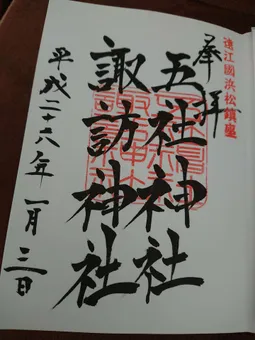 遠江國浜松鎮座
奉拝
五社神社
諏訪神社
平成二十六年一月三日